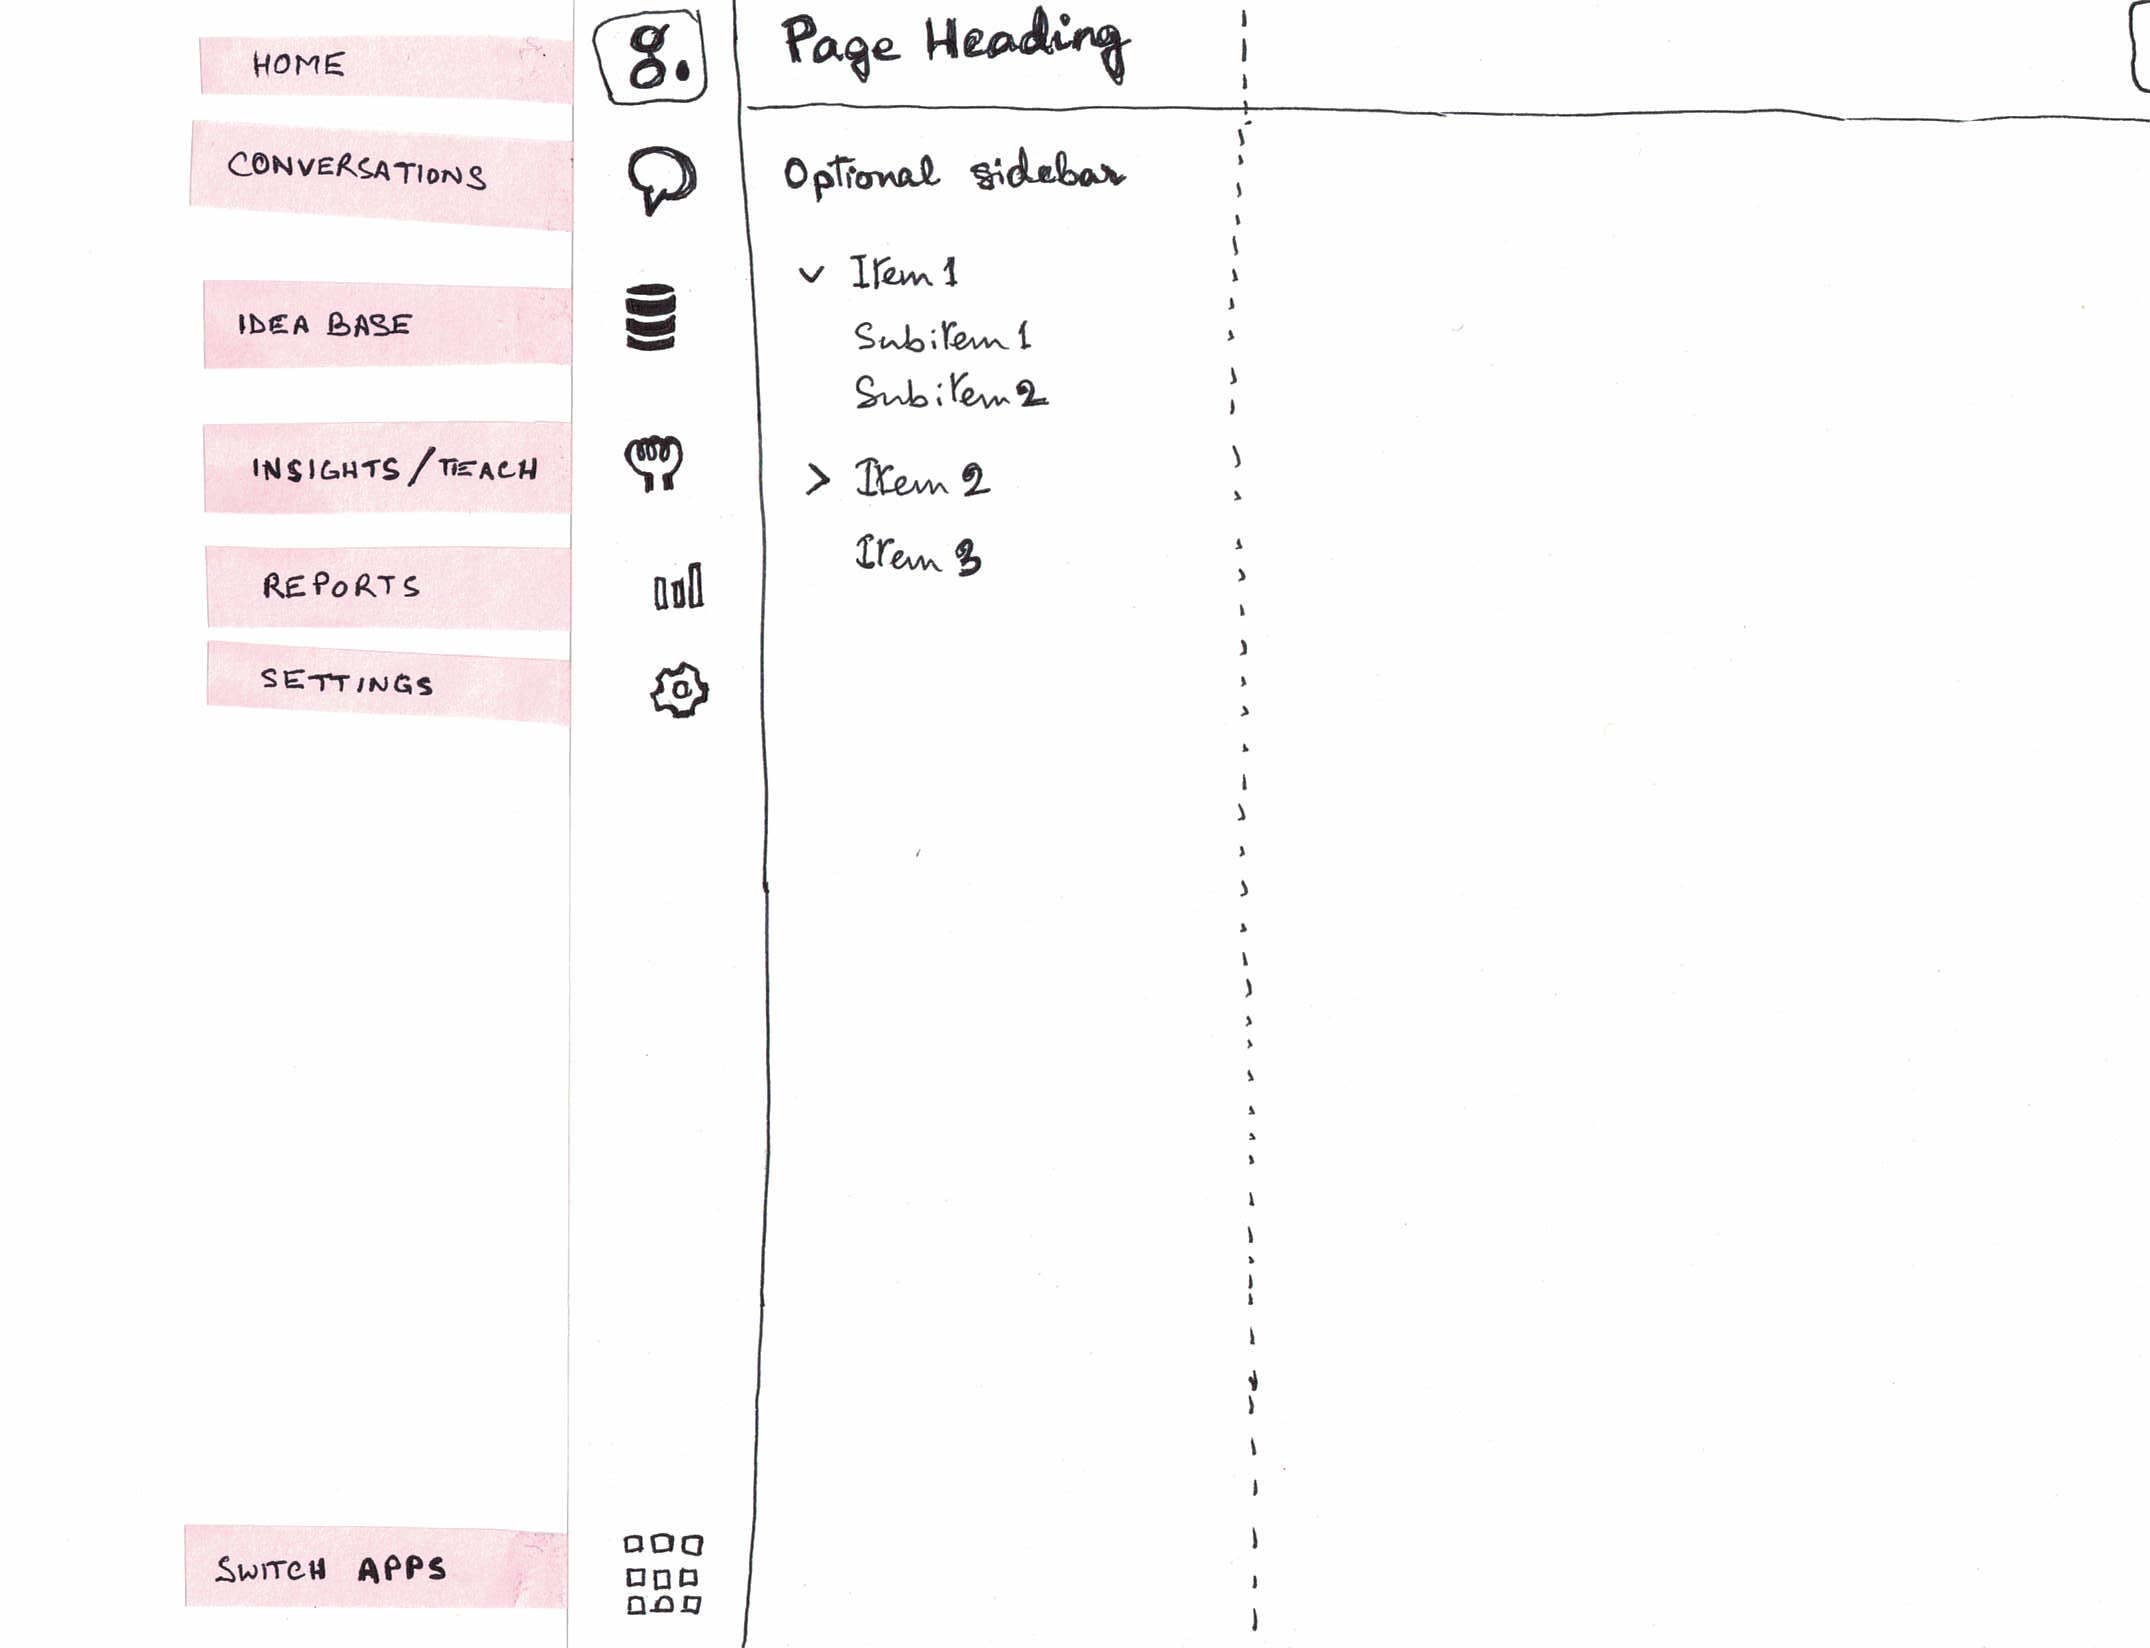 HOME
CONVERSATIONS
IDEA BASE
INSIGHTS/TEACH
REPORTS
SETTINGS
SWITCH APPS
g.
Page Heading
Optional sidebar
Item 1
Subitem 1
Subitem 2
> Item 2
Item 3